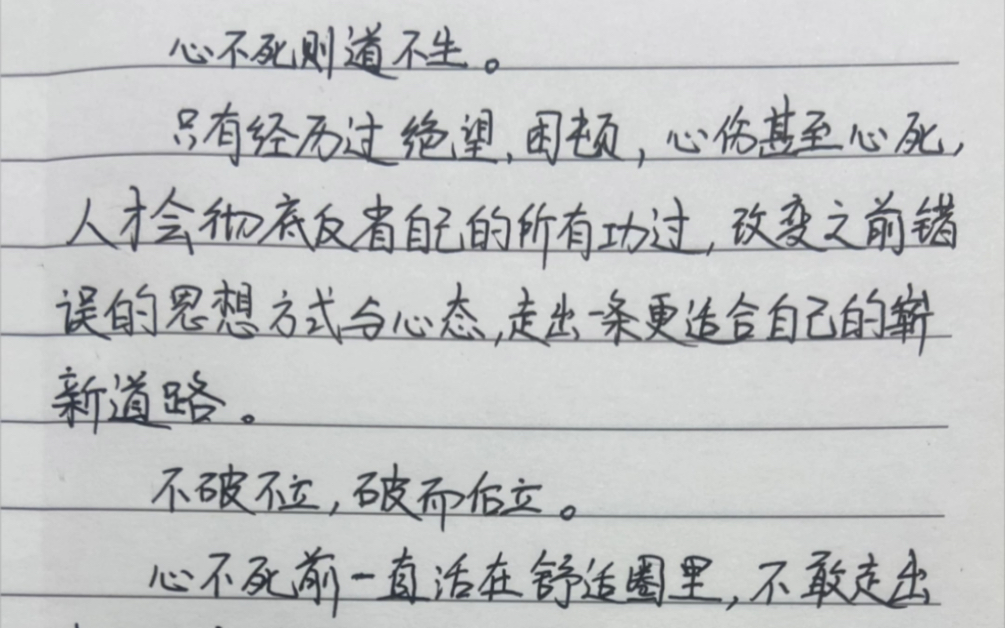 心不死则道不生。
只有经历过绝望、困顿，心伤甚至心死，
人才会彻底反省自己的所有功过，改变之前错
误的思想方式与心态，走出一条更适合自己的崭
新道路。
不破不立，破而后立。
心不死前一直活在舒适圈里，不敢走出